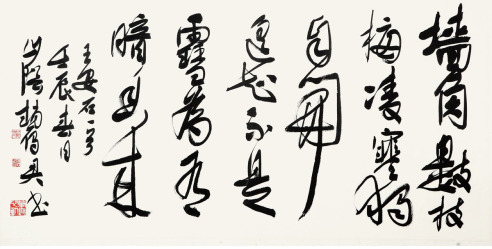 墙角数枝
梅凌寒独
自开
遥知不是
雪为有
暗香来
王安石一首
壬辰春月